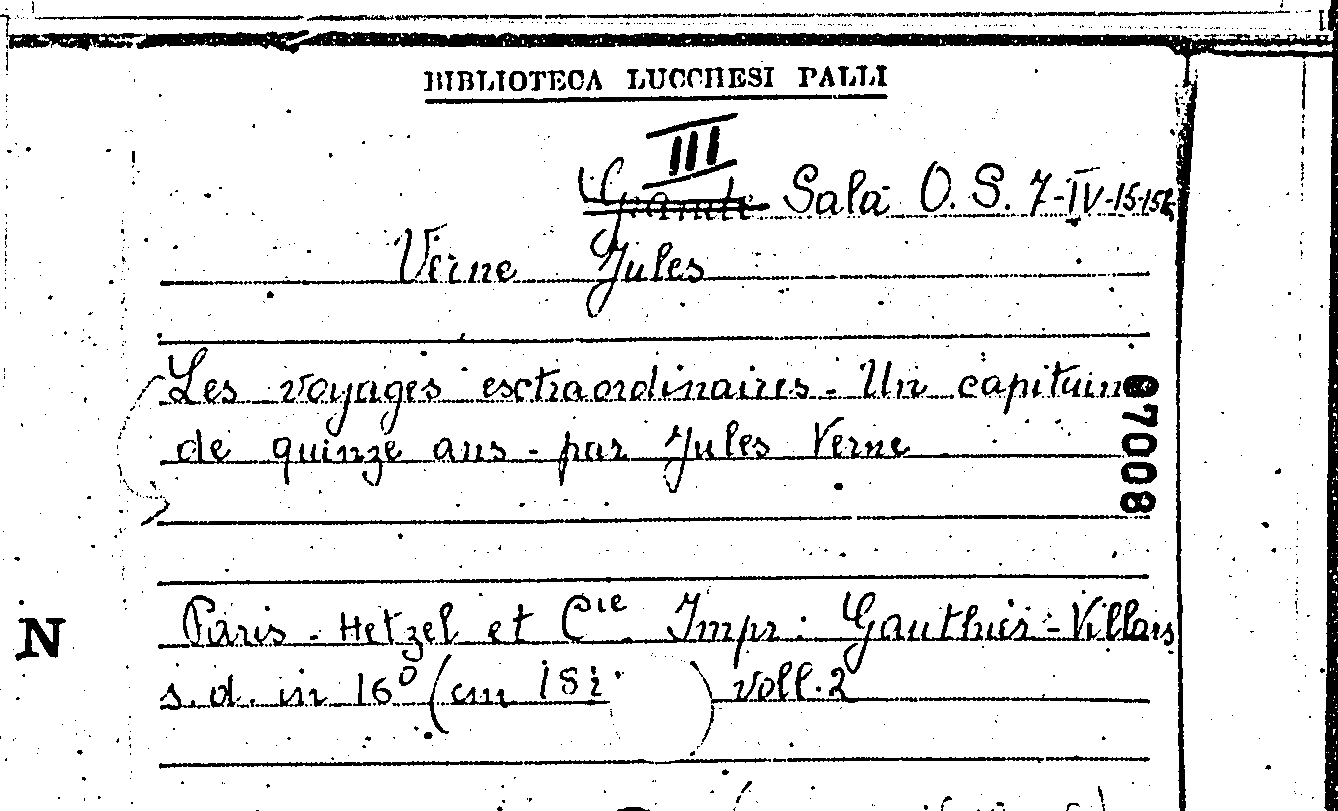 BIBLIOTECA LUCCHESI PALLI
III
Grande Sala O. S. 7-IV-15-15
Verne Jules
Les voyages esctraordinaires - Un capitaine
de quinze ans - par Jules Verne
67008
N
Paris - Hetzel et Cie Impr: Gauthier-Villars
s. d. in 16° (cm 18 ) voll. 2